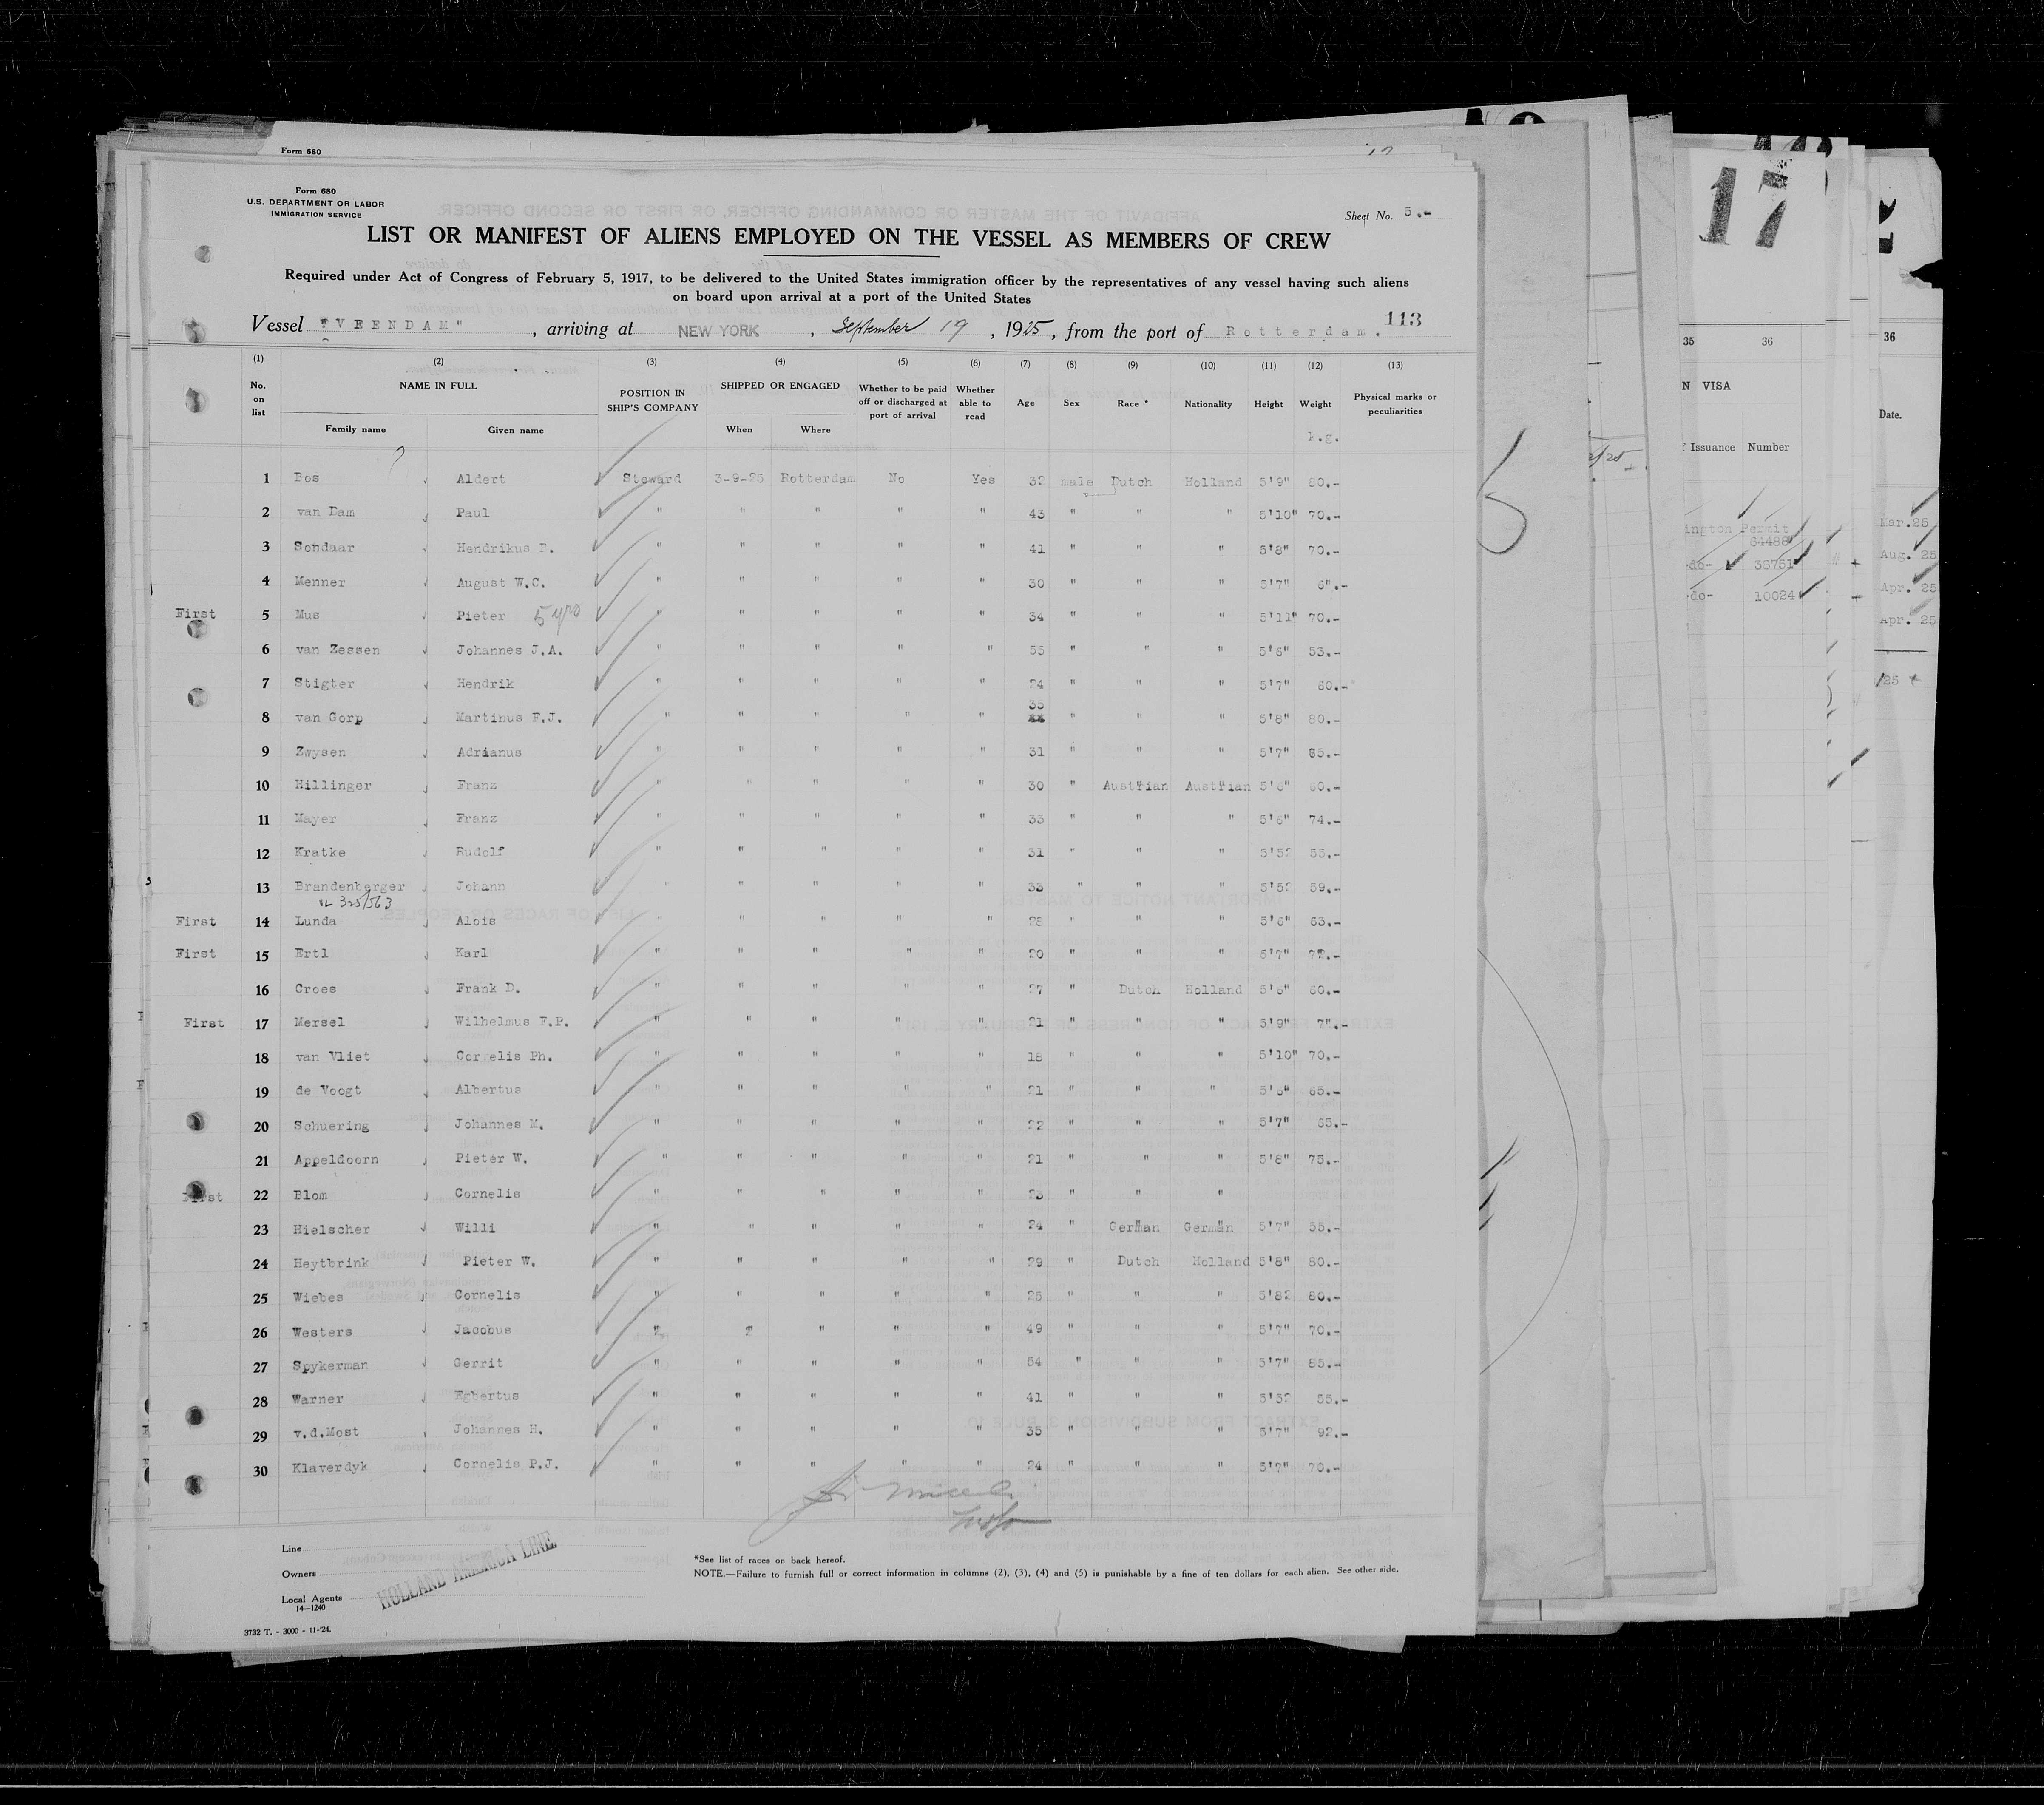 Form 680
17
Form 680
U.S. DEPARTMENT OR LABOR
IMMIGRATION SERVICE
Sheet No. 5.-
LIST OR MANIFEST OF ALIENS EMPLOYED ON THE VESSEL AS MEMBERS OF CREW
Required under Act of Congress of February 5, 1917, to be delivered to the United States immigration officer by the representatives of any vessel having such aliens
on board upon arrival at a port of the United States
Vessel "VEENDAM", arriving at NEW YORK, September 19, 1925, from the port of Rotterdam. 113
(1) (2) (3) (4) (5) (6) (7) (8) (9) (10) (11) (12) (13)
No. on list NAME IN FULL POSITION IN SHIP'S COMPANY SHIPPED OR ENGAGED Whether to be paid off or discharged at port of arrival Whether able to read Age Sex Race * Nationality Height Weight Physical marks or peculiarities
Family name Given name When Where k.g.
1 Bos Aldert Steward 3-9-25 Rotterdam No Yes 32 male Dutch Holland 5'9" 80.-
2 van Dam Paul " " " " " 43 " " " 5'10" 70.-
3 Sondaar Hendrikus P. " " " " " 41 " " " 5'8" 70.-
4 Menner August W.C. " " " " " 30 " " " 5'7" 6".-
First 5 Mus Pieter " " " " " 34 " " " 5'11" 70.-
6 van Zessen Johannes J.A. " " " " " 55 " " " 5'6" 53.-
7 Stigter Hendrik " " " " " 24 " " " 5'7" 60.-
8 van Gorp Martinus F.J. " " " " " 35 " " " 5'8" 80.-
9 Zwysen Adrianus " " " " " 31 " " " 5'7" 65.-
10 Hillinger Franz " " " " " 30 " Austrian Austrian 5'6" 60.-
11 Mayer Franz " " " " " 33 " " " 5'6" 74.-
12 Kratke Rudolf " " " " " 31 " " " 5'52 55.-
13 Brandenberger Johann " " " " " 33 " " " 5'52 59.-
325/563
First 14 Lunda Alois " " " " " 28 " " " 5'6" 63.-
First 15 Ertl Karl " " " " " 20 " " " 5'7" 72.-
16 Croes Frank D. " " " " " 27 " Dutch Holland 5'6" 60.-
First 17 Mersel Wilhelmus F.P. " " " " " 21 " " " 5'9" 7".-
18 van Vliet Cornelis Ph. " " " " " 18 " " " 5'10" 70.-
19 de Voogt Albertus " " " " " 21 " " " 5'6" 65.-
20 Schuering Johannes M. " " " " " 22 " " " 5'7" 65.-
21 Appeldoorn Pieter W. " " " " " 21 " " " 5'8" 75.-
First 22 Blom Cornelis " " " " " 23 " " "
23 Hielscher Willi " " " " " 24 " German German 5'7" 55.-
24 Heytbrink Pieter W. " " " " " 29 " Dutch Holland 5'8" 80.-
25 Wiebes Cornelis " " " " " 25 " " " 5'82 80.-
26 Westers Jacobus " " " " " 49 " " " 5'7" 70.-
27 Spykerman Gerrit " " " " " 54 " " " 5'7" 85.-
28 Warner Egbertus " " " " " 41 " " " 5'32 55.-
29 v.d.Most Johannes H. " " " " " 35 " " " 5'7" 92.-
30 Klaverdyk Cornelis P.J. " " " " " 24 " " " 5'7" 70.-
Line
Owners
Local Agents
14-1240
HOLLAND AMERICA LINE.
*See list of races on back hereof.
NOTE.—Failure to furnish full or correct information in columns (2), (3), (4) and (5) is punishable by a fine of ten dollars for each alien. See other side.
3732 T. - 3000 - 11-'24.
35 36
N VISA
Issuance Number
ington Permit
64488
-do- 38751
-do- 10024
36
Date.
Mar.25
Aug. 25
Apr. 25
Apr. 25
/25